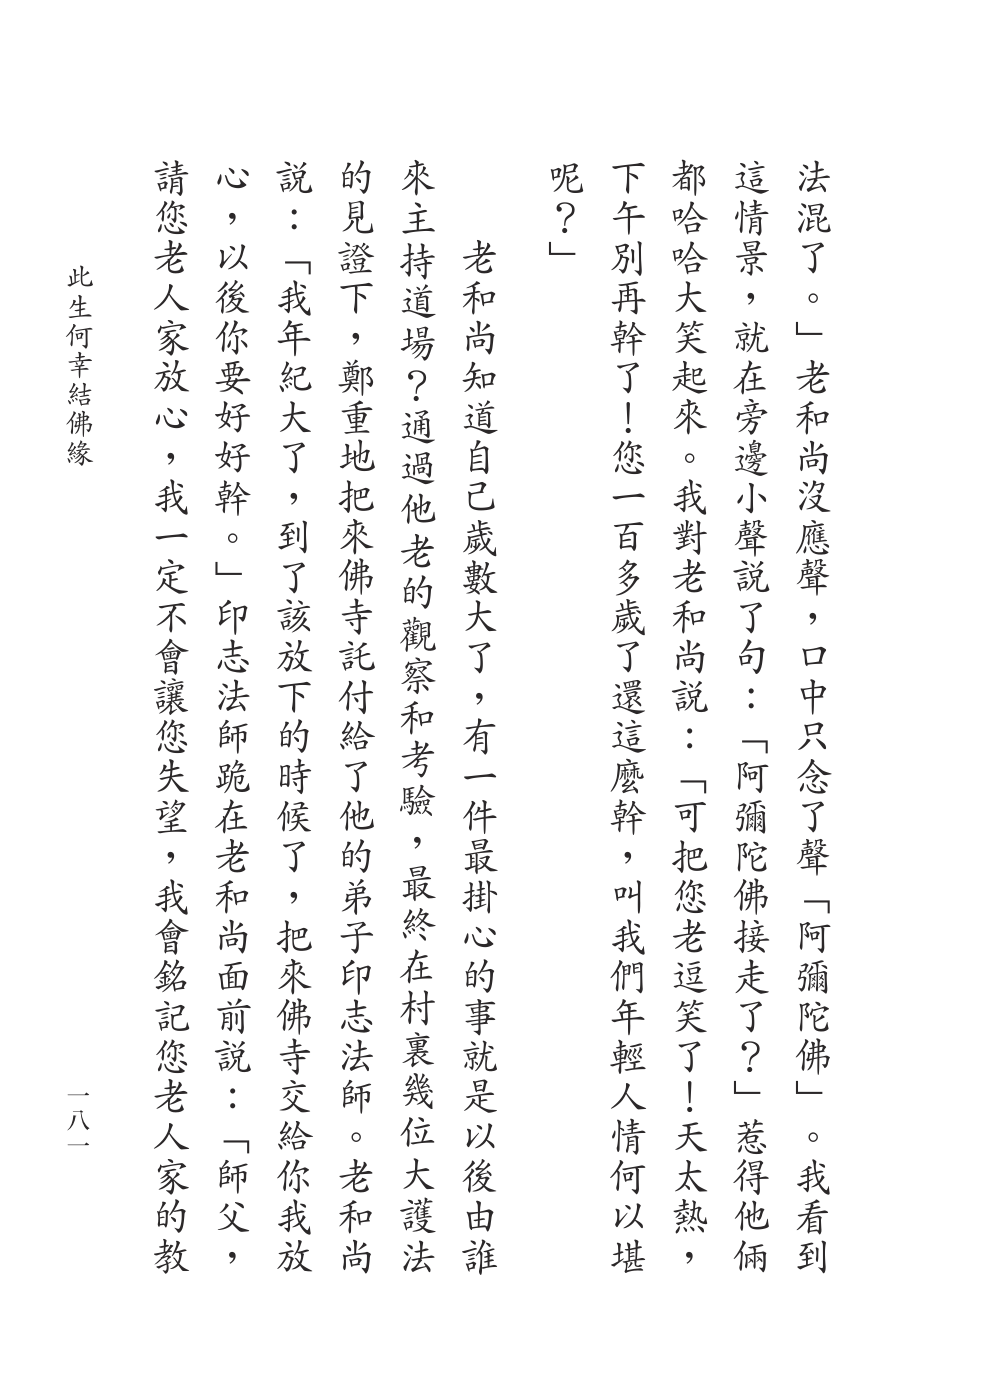 法混了。」老和尚沒應聲，口中只念了聲「阿彌陀佛」。我看到
這情景，就在旁邊小聲説了句：「阿彌陀佛接走了？」惹得他倆
都哈哈大笑起來。我對老和尚説：「可把您老逗笑了！天太熱，
下午別再幹了！您一百多歲了還這麼幹，叫我們年輕人情何以堪
呢？」
老和尚知道自己歲數大了，有一件最掛心的事就是以後由誰
來主持道場？通過他老的觀察和考驗，最終在村裏幾位大護法
的見證下，鄭重地把來佛寺託付給了他的弟子印志法師。老和尚
説：「我年紀大了，到了該放下的時候了，把來佛寺交給你我放
心，以後你要好好幹。」印志法師跪在老和尚面前説：「師父，
請您老人家放心，我一定不會讓您失望，我會銘記您老人家的教
此生何幸結佛緣
一八一